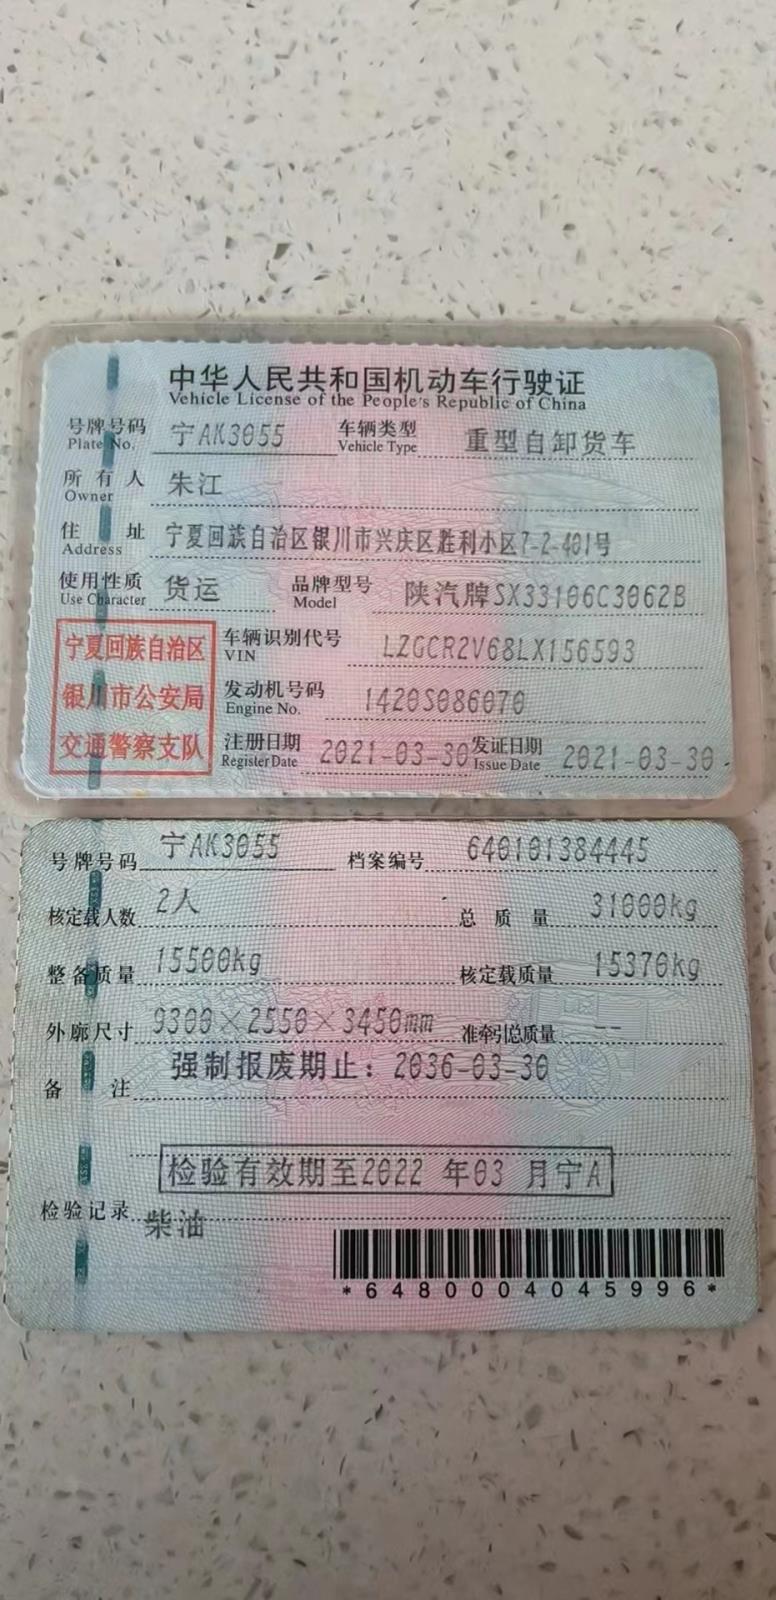 中华人民共和国机动车行驶证
Vehicle License of the People's Republic of China
号牌号码 Plate No. 宁AK3055 车辆类型 Vehicle Type 重型自卸货车
所有人 Owner 朱江
住址 Address 宁夏回族自治区银川市兴庆区胜利小区7-2-401号
使用性质 Use Character 货运 品牌型号 Model 陕汽牌SX33106C3062B
宁夏回族自治区
银川市公安局
交通警察支队
车辆识别代号 VIN LZGCR2V68LX156593
发动机号码 Engine No. 1420S086070
注册日期 Register Date 2021-03-30 发证日期 Issue Date 2021-03-30
号牌号码 宁AK3055 档案编号 640101384445
核定载人数 2人 总质量 31000kg
整备质量 15500kg 核定载质量 15370kg
外廓尺寸 9300×2550×3450mm 准牵引总质量 --
备注 强制报废期止：2036-03-30
检验有效期至2022 年03 月宁A
检验记录 柴油
*6480004045996*